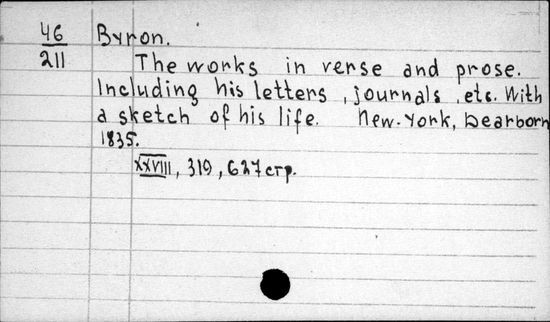 46
211
Byron.
The works in verse and prose.
Including his letters, journals, etc. With
a sketch of his life. New-York, Dearborn
1835.
XXVIII, 319, 627 стр.